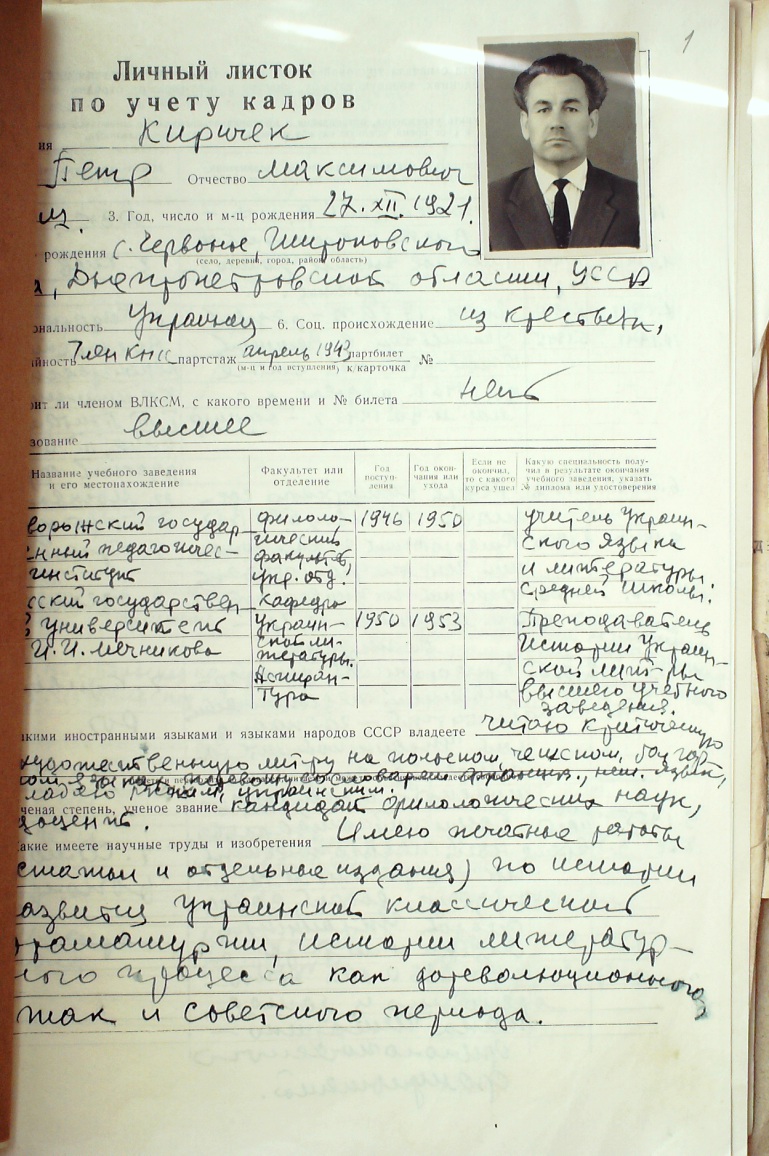 1
Личный листок
по учету кадров
ия Киричек
Петр Отчество Максимович
м. 3. Год, число и м-ц рождения 27.XII.1921.
рождения с. Червоное, Широковского
(село, деревня, город, район, область)
а, Днепропетровской области, УССР
ональность Украинец 6. Соц. происхождение из крестьян,
йность Член КПСС партстаж апрель 1943 партбилет №
(м-ц и год вступления) к/карточка
оит ли членом ВЛКСМ, с какого времени и № билета нет
зование высшее
Название учебного заведения и его местонахождение
Факультет или отделение
Год поступ-ления
Год окон-чания или ухода
Если не окончил, то с какого курса ушел
Какую специальность полу-чил в результате окончания учебного заведения, указать № диплома или удостоверения
ворожский государ филоло- 1946 1950 учитель Украин-
нный педагогичес- гический ского языка
институт факультет, и литературы
укр. отд. средней школы.
сский государствен кафедра
Университет Украин- 1950 1953 Преподаватель
И.И. Мечникова ской ли- Истории Украин-
тературы. ской лит-ры
Аспиран- высшего учебного
тура заведения.
акими иностранными языками и языками народов СССР владеете читаю критическую
художественную лит-ру на польском, чешском, болгар
ском языках, нем. язык,
ладею русским, украинским.
ченая степень, ученое звание кандидат филологических наук,
доцент.
акие имеете научные труды и изобретения Имею печатные работы
статьи и отдельные издания) по истории
азвития украинской классической
раматургии, истории литератур-
ного процесса как дореволюционного,
так и советского периода.